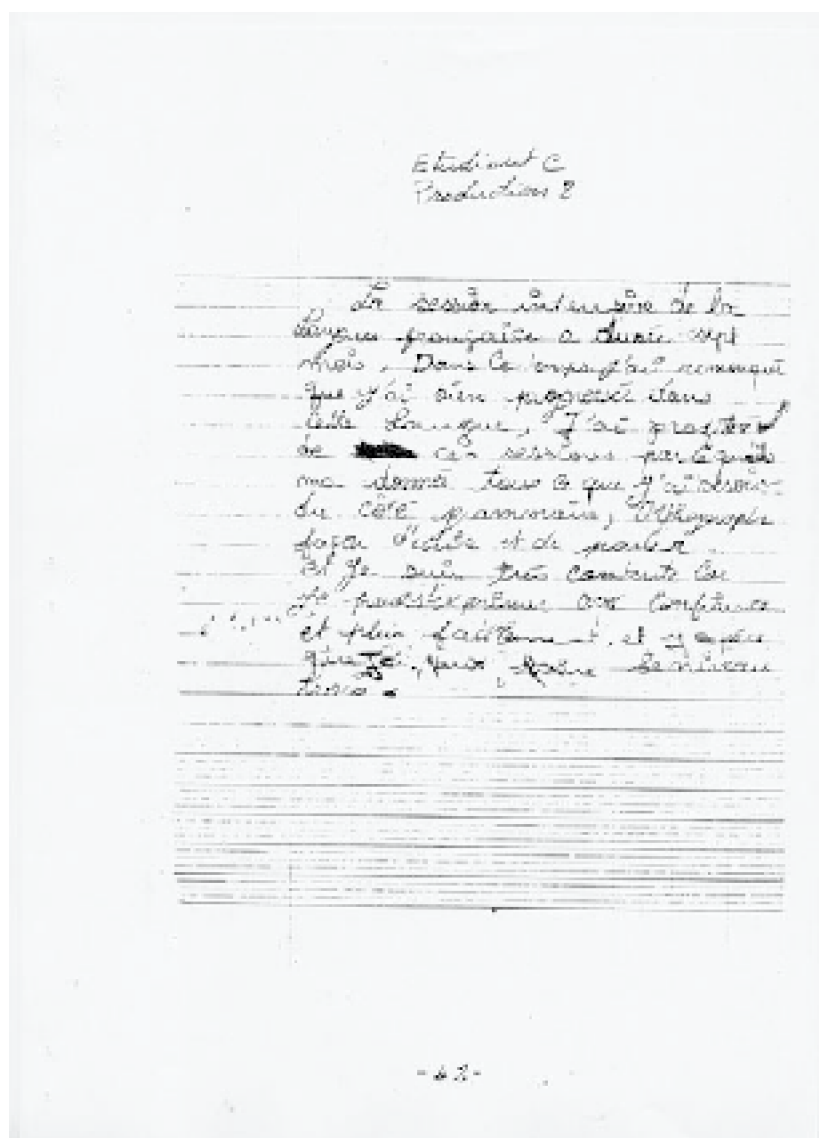 Etudiant C
Production 2
La session intensive de la
langue française a durée sept
mois. Dans ce temps j'ai remarqué
que j'ai bien progressé dans
cette langue, J'ai profiter
de ces sessions parcequ'ils
ma donné tous ce que j'ai besoin
du côté grammaire, Orthographe
façon d'écrite et de parler.
Et Je suis très contente Car
Je peux exprimer confiance
et plus facilement. et
que le niveau
- 62 -